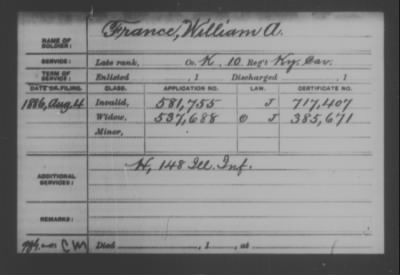 NAME OF SOLDIER: France, William A.
SERVICE: Late rank, Co. K, 10 Reg't Ky. Cav.
TERM OF SERVICE: Enlisted , 1 Discharged , 1
DATE OF FILING. CLASS. APPLICATION NO. LAW. CERTIFICATE NO.
1886, Aug. 4 Invalid, 581,755 J 717,407
Widow, 537,688 J 385,671
Minor,
ADDITIONAL SERVICES: H, 148 Ill. Inf.
REMARKS:
Died , 1 , at